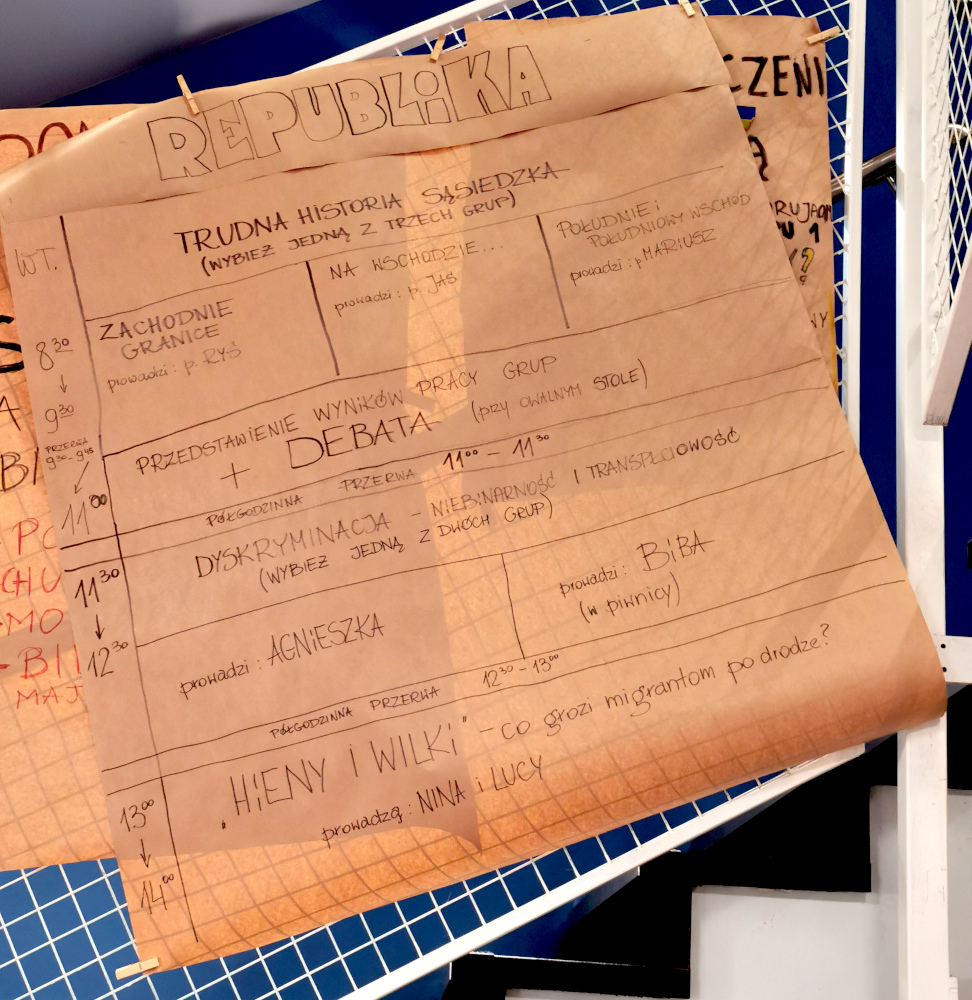 REPUBLiKA
WT.
TRUDNA HISTORIA SĄSIEDZKA
(WYBIEZ JEDNĄ Z TRZECH GRUP)
8³⁰
↓
9³⁰
ZACHODNIE
GRANICE
prowadzi: p. RYŚ
NA WSCHODZIE...
prowadzi: p. JAŚ
POŁUDNIE i
POŁUDNIOWY WSCHÓD
prowadzi: p MARIUSZ
PRZERWA
9³⁰-9⁴⁵
11⁰⁰
PRZEDSTAWIENIE WYNiKÓW PRACY GRUP
+ DEBATA (PRZY OWALNYM STOLE)
PÓŁGODZINNA PRZERWA 11⁰⁰ - 11³⁰
11³⁰
↓
12³⁰
DYSKRYMINACJA - NIEBINARNOŚĆ I TRANSPŁCIOWOŚĆ
(WYBIEZ JEDNĄ Z DWÓCH GRUP)
prowadzi: AGNiESZKA
prowadzi: BiBA
(w piwnicy)
PÓŁGODZINNA PRZERWA 12³⁰ - 13⁰⁰
13⁰⁰
↓
14⁰⁰
„HiENY i WILKi" - co grozi migrantom po drodze?
prowadzą: NINA i LUCY
CZENI
Ą
RUJĄ
U 1
?
NY
A
BI
PO
CHU
MO
-BII
MAJ